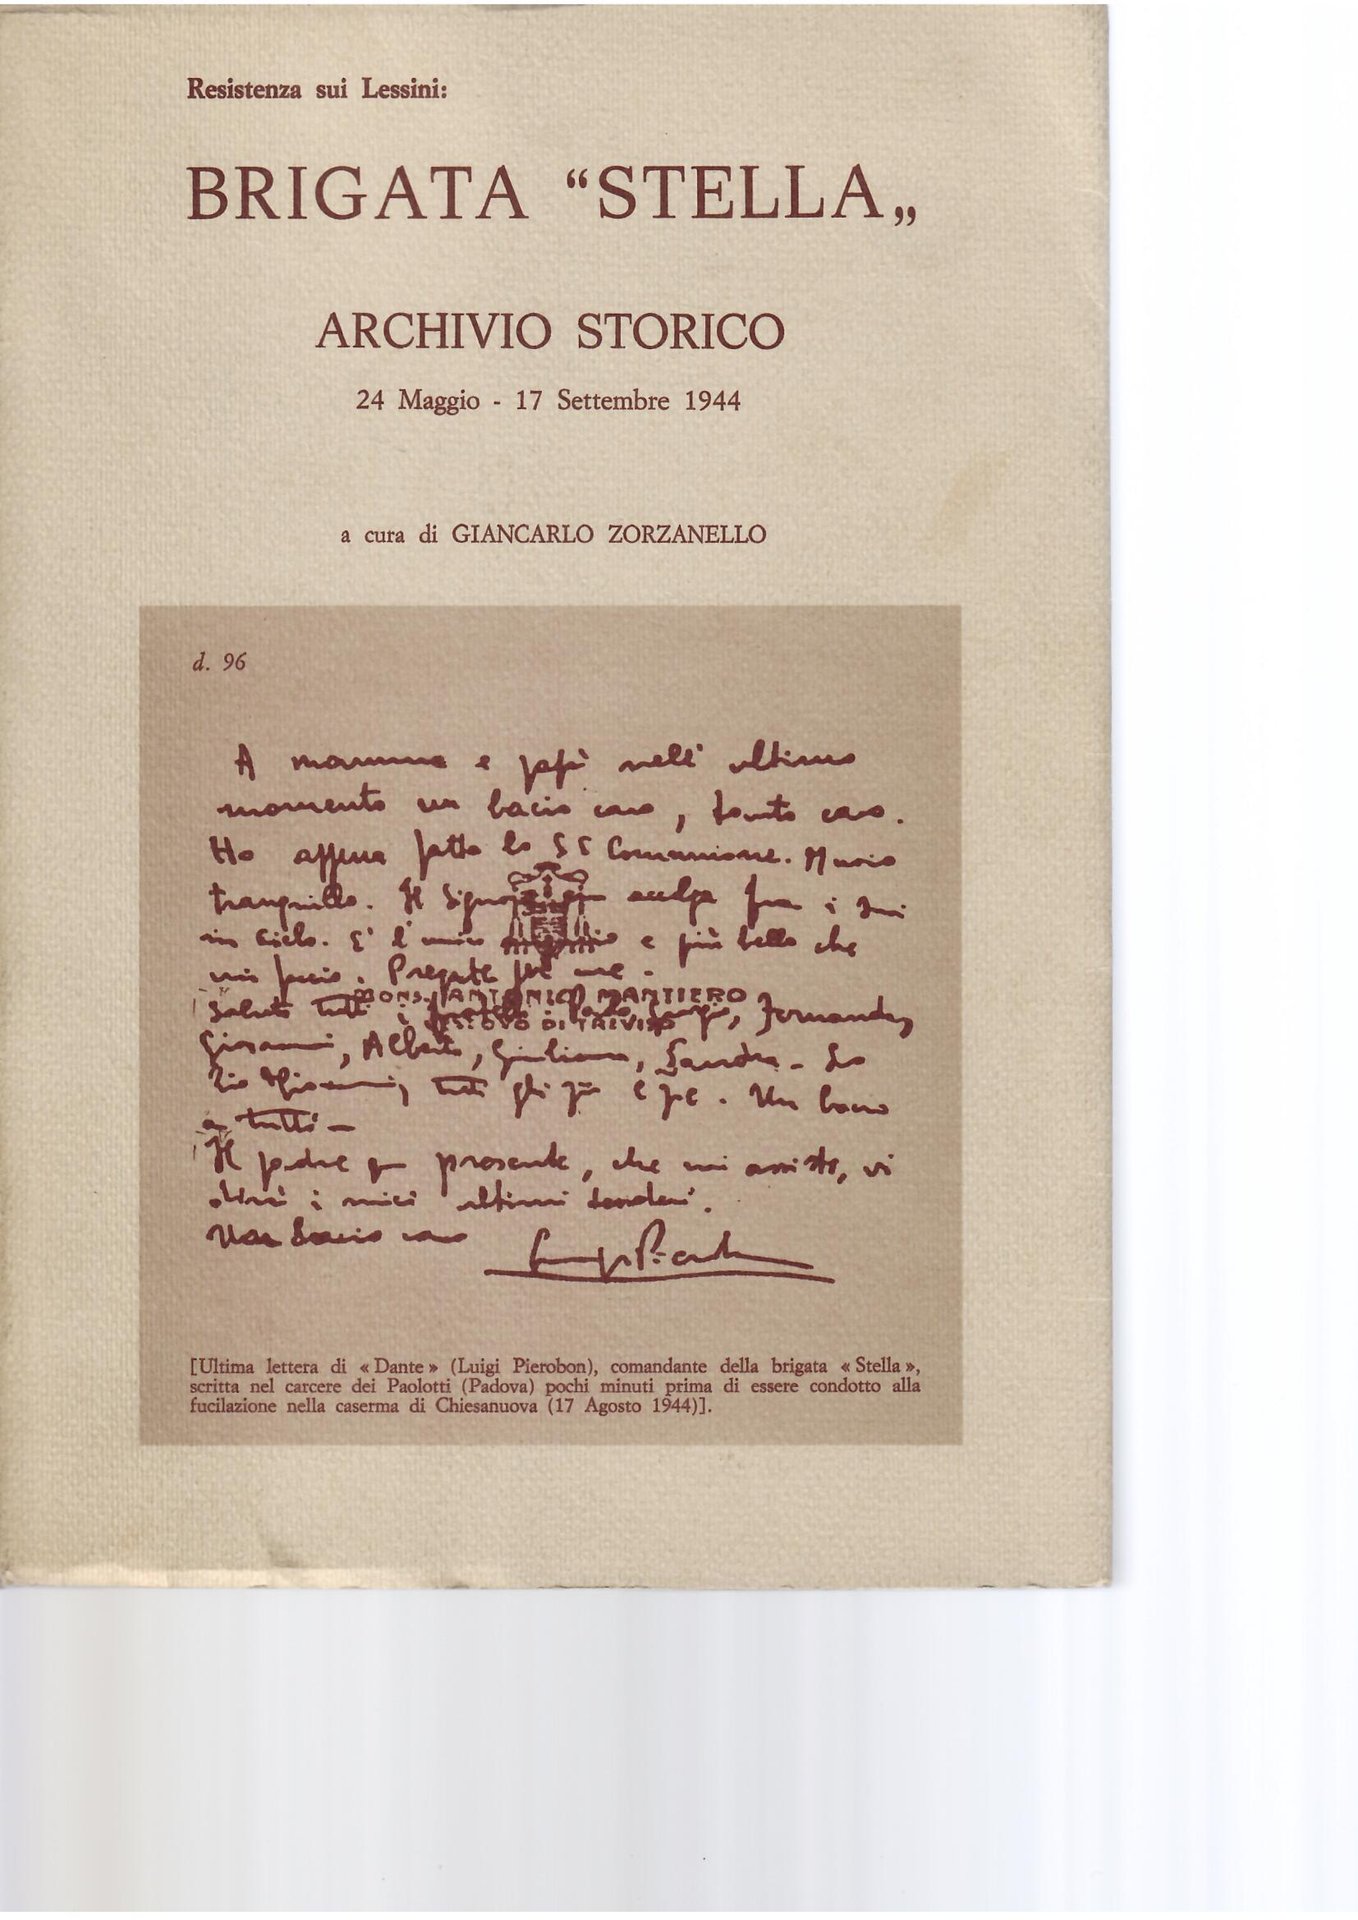 Resistenza sui Lessini:
BRIGATA “STELLA„
ARCHIVIO STORICO
24 Maggio - 17 Settembre 1944
a cura di GIANCARLO ZORZANELLO
d. 96
A mamma e papà nell' ultimo
momento un bacio caro, tanto caro.
Ho appena fatto la SS Comunione. Muoio
tranquillo. Il Signore accolga fra i suoi
in cielo. E' l' unico e più bello che
mi faccio. Pregate per me.
MONS. ANTONIO MANTIERO
VESCOVO DI TREVISO
Saluto tutti i fratelli: Paolo, Sergio, Fernando,
Giovanni, Alberto, Giuliana, Sandra - Lo
Zio Giovanni, tutti gli zii e ze. Un bacio
a tutti -
Il padre qui presente, che mi assiste, vi
dirà i miei ultimi desideri.
Un bacio caro Luigi Pierobon
[Ultima lettera di « Dante » (Luigi Pierobon), comandante della brigata « Stella »,
scritta nel carcere dei Paolotti (Padova) pochi minuti prima di essere condotto alla
fucilazione nella caserma di Chiesanuova (17 Agosto 1944)].